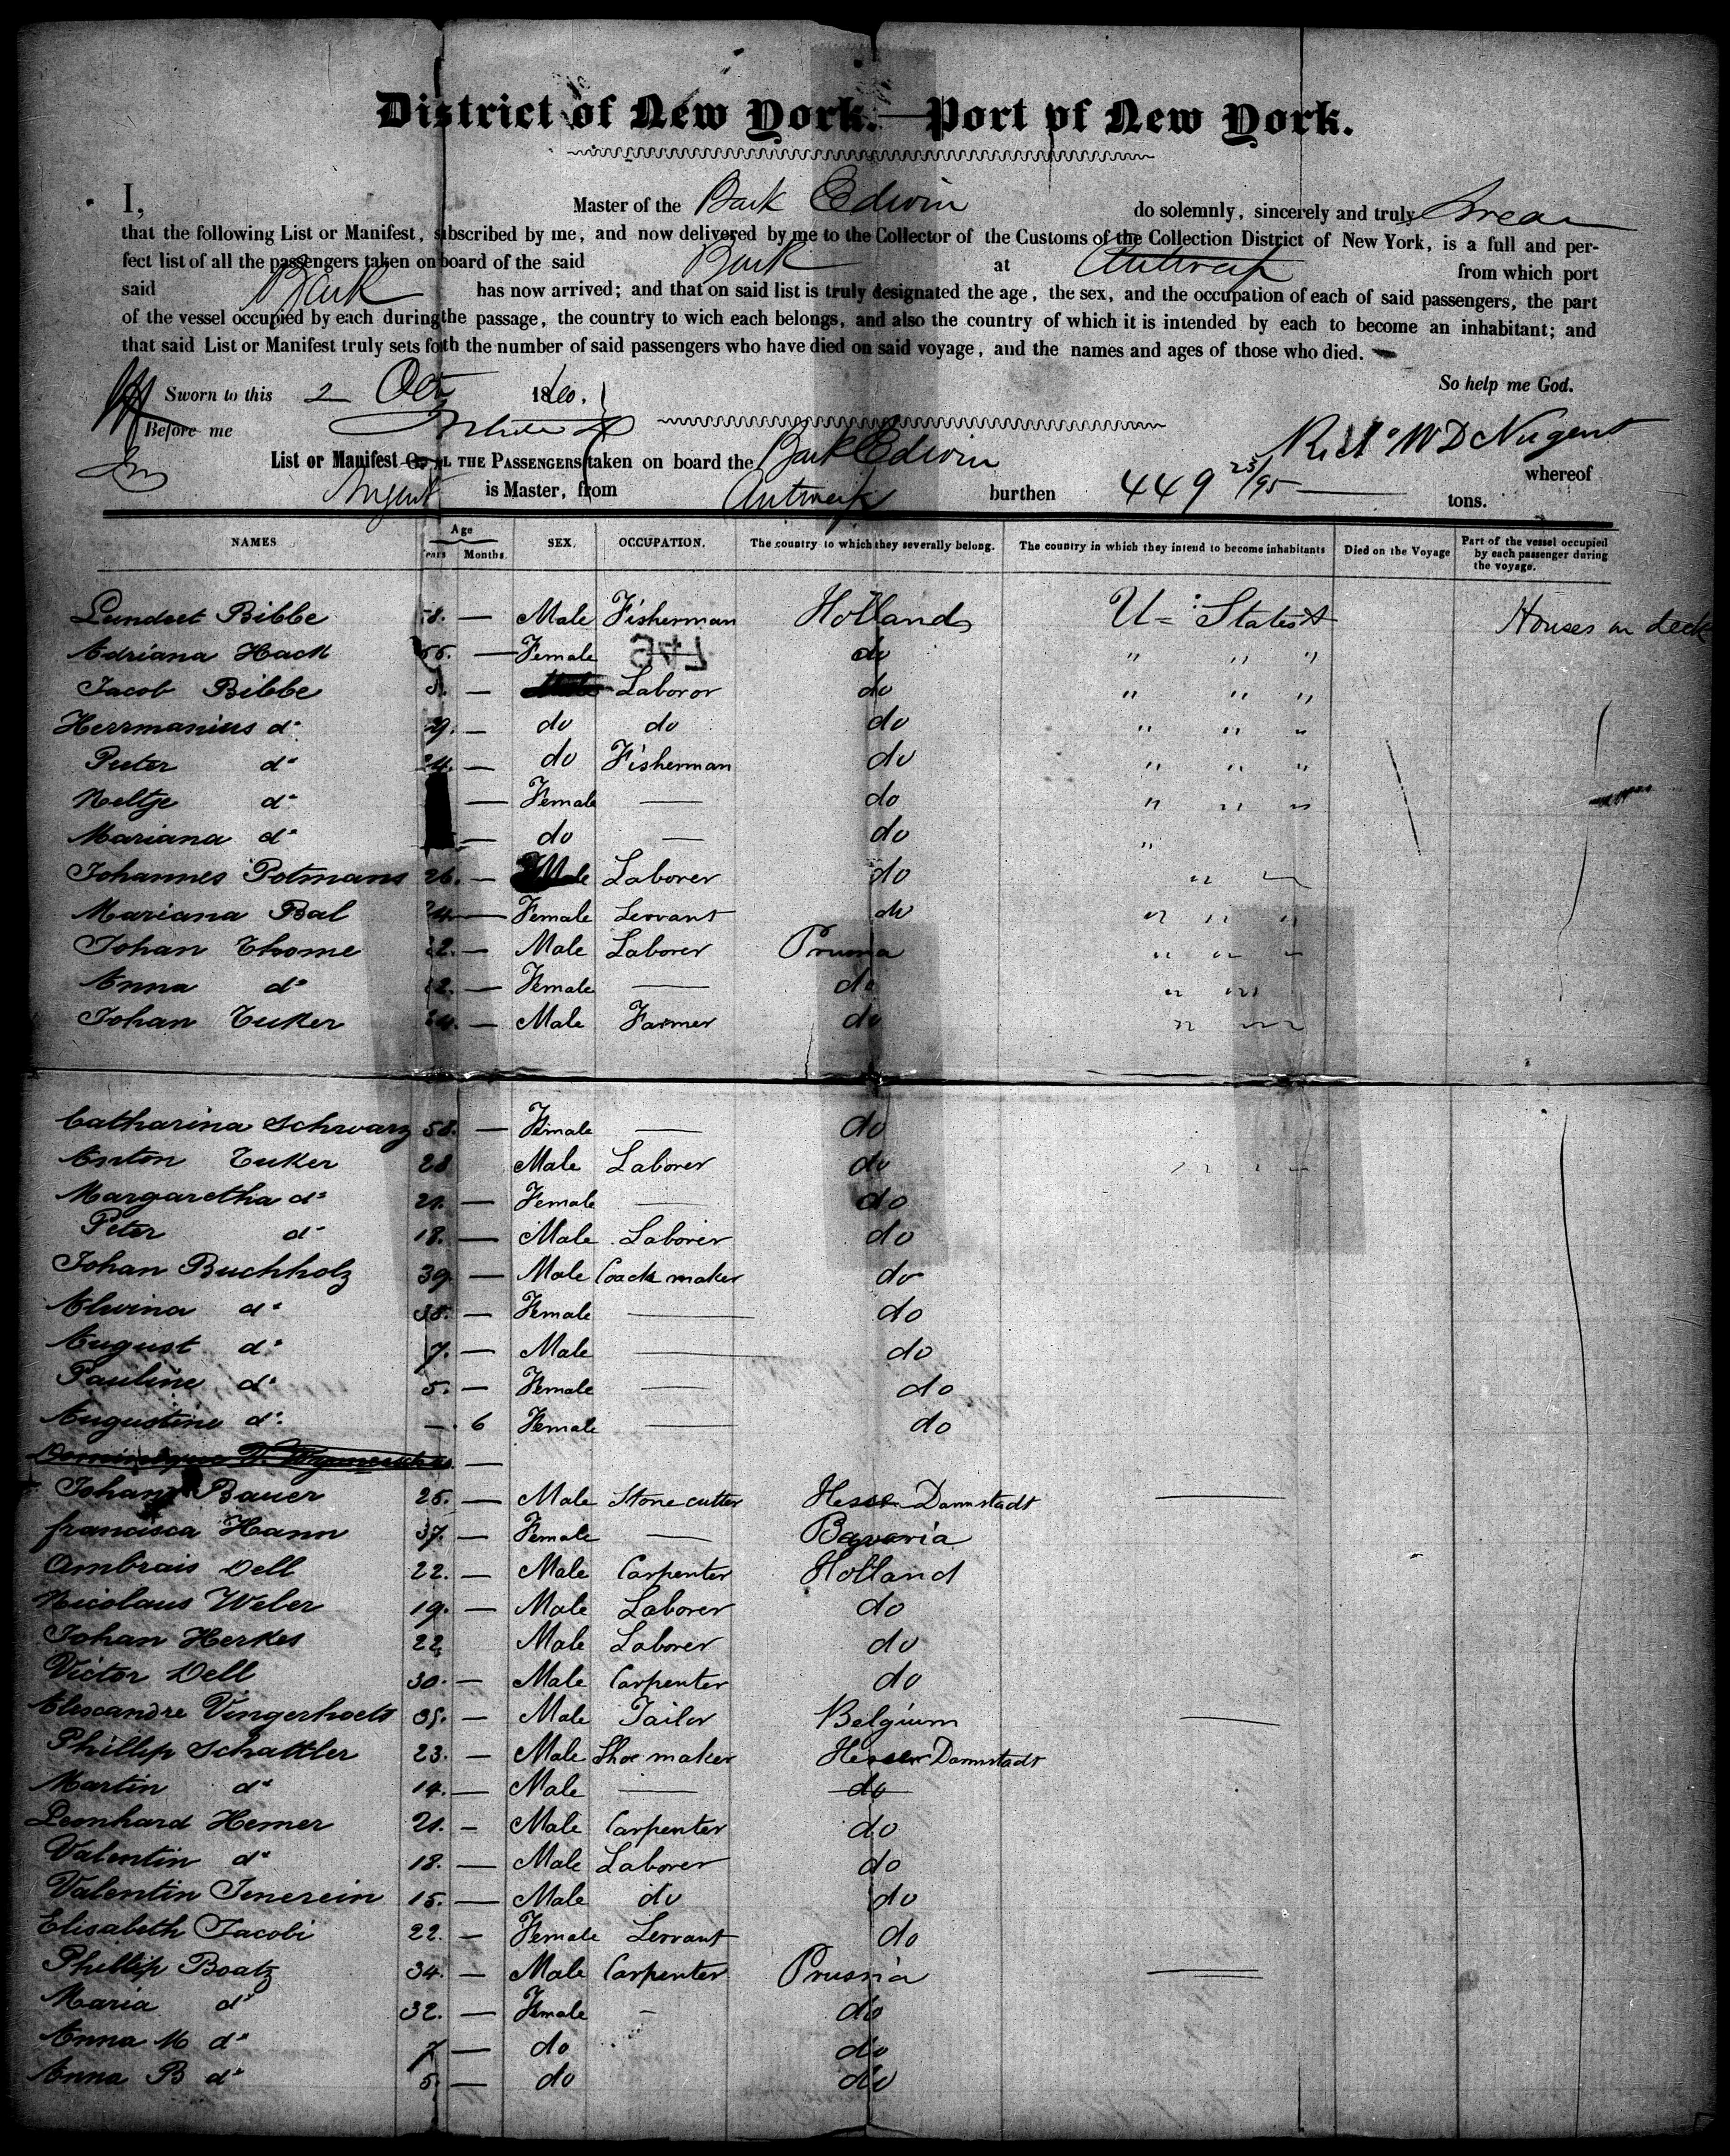 District of New York.—Port of New York.
I, Master of the Bark Edwin do solemnly, sincerely and truly Swear
that the following List or Manifest, subscribed by me, and now delivered by me to the Collector of the Customs of the Collection District of New York, is a full and per-
fect list of all the passengers taken on board of the said Bark at Antwerp from which port
said Bark has now arrived; and that on said list is truly designated the age, the sex, and the occupation of each of said passengers, the part
of the vessel occupied by each during the passage, the country to wich each belongs, and also the country of which it is intended by each to become an inhabitant; and
that said List or Manifest truly sets forth the number of said passengers who have died on said voyage, and the names and ages of those who died.
So help me God.
Sworn to this 2 Oct 1860.
Before me
Richd W D Nugent
List or Manifest OF ALL THE PASSENGERS taken on board the Bark Edwin whereof
Nugent is Master, from Antwerp burthen 449 23/95 tons.
NAMES Age Years Months SEX. OCCUPATION. The country to which they severally belong. The country in which they intend to become inhabitants Died on the Voyage Part of the vessel occupied by each passenger during the voyage.
Bibbe 58. — Male Fisherman Holland U: States Houses on deck
Adriana Hack 55. — Female do " " "
Jacob Bibbe — Laboror do " " "
Herrmanius do 29. — do do do " " "
Peeter do 24. — do Fisherman do " " "
Neltje do — Female — do " " "
Mariana do — do — do "
Johannes Potmans 26. — Male Laborer do " "
Mariana Bal 24 — Female Servant do " " "
Johan Thome 22. — Male Laborer Prussia " " "
Anna do — Female — do " "
Johan Tuker 24. — Male Farmer do " "
Catharina Schwarz 58. — Female — do
Anton Tuker 28 Male Laborer do " " " "
Margaretha do 21. — Female — do
Peter do 18. — Male Laborer do
Johan Buchholz 39. — Male Coach maker do
Alwina do 38. — Female — do
August do 7. — Male — do
Pauline do 5. — Female — do
Augustine do — 6 Female — do
Johann Bauer 25. — Male Stone cutter Hesse Darmstadt —
francisca Hann 37. — Female — Bavaria
Ambrais Dell 22. — Male Carpenter Holland
Nicolaus Weber 19. — Male Laborer do
Johan Herkes 22 Male Laborer do
Victor Dell 30. — Male Carpenter do
Alexandre Vingerhoets 35. — Male Tailor Belgium —
Phillip Schattler 23. — Male Shoe maker Hesse Darmstadt
Martin do 14. — Male — do
Leonhard Hemer 21. — Male Carpenter do
Valentin do 18. — Male Laborer do
Valentin 15. — Male do do
Elisabeth Jacobi 22. — Female Servant do
Phillip Boatz 34. — Male Carpenter Prussia —
Maria do 32. — Female - do
Anna M do 7 — do do
Anna B do 5. — do do